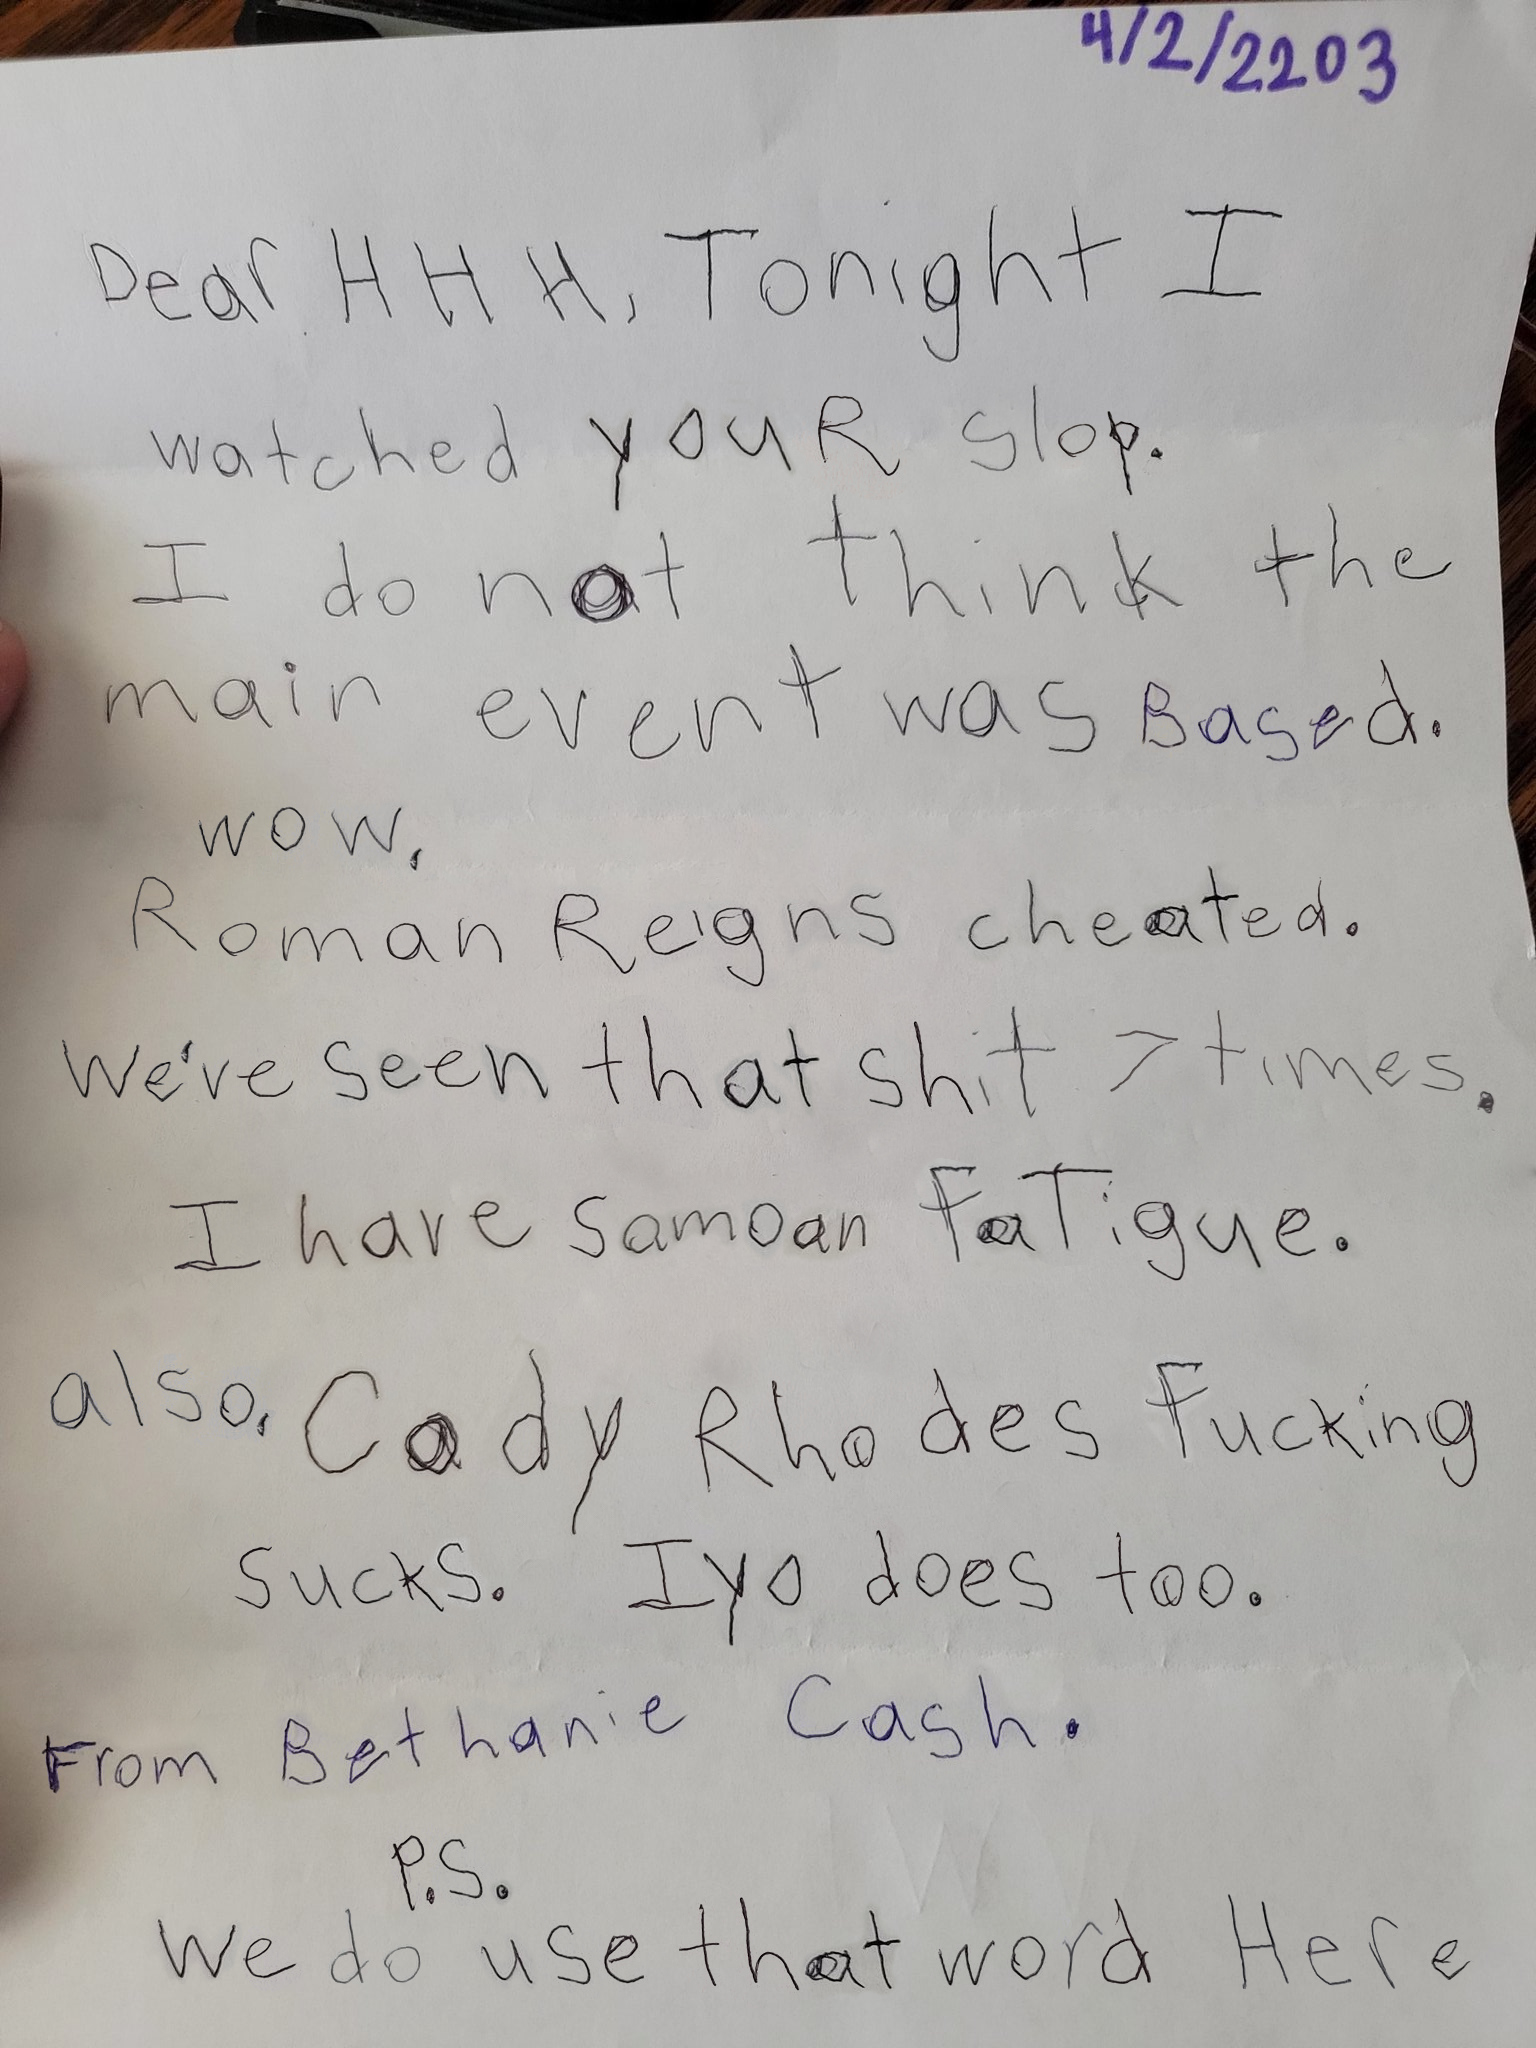 4/2/2203
Dear HHH, Tonight I
watched youR slop.
I do not think the
main event was Based.
wow,
Roman Reigns cheated.
We've seen that shit 7 times.
I have samoan FaTigue.
also, Cody Rhodes Fucking
sucks. Iyo does too.
From Bethanie Cash.
P.S.
We do use that word Here